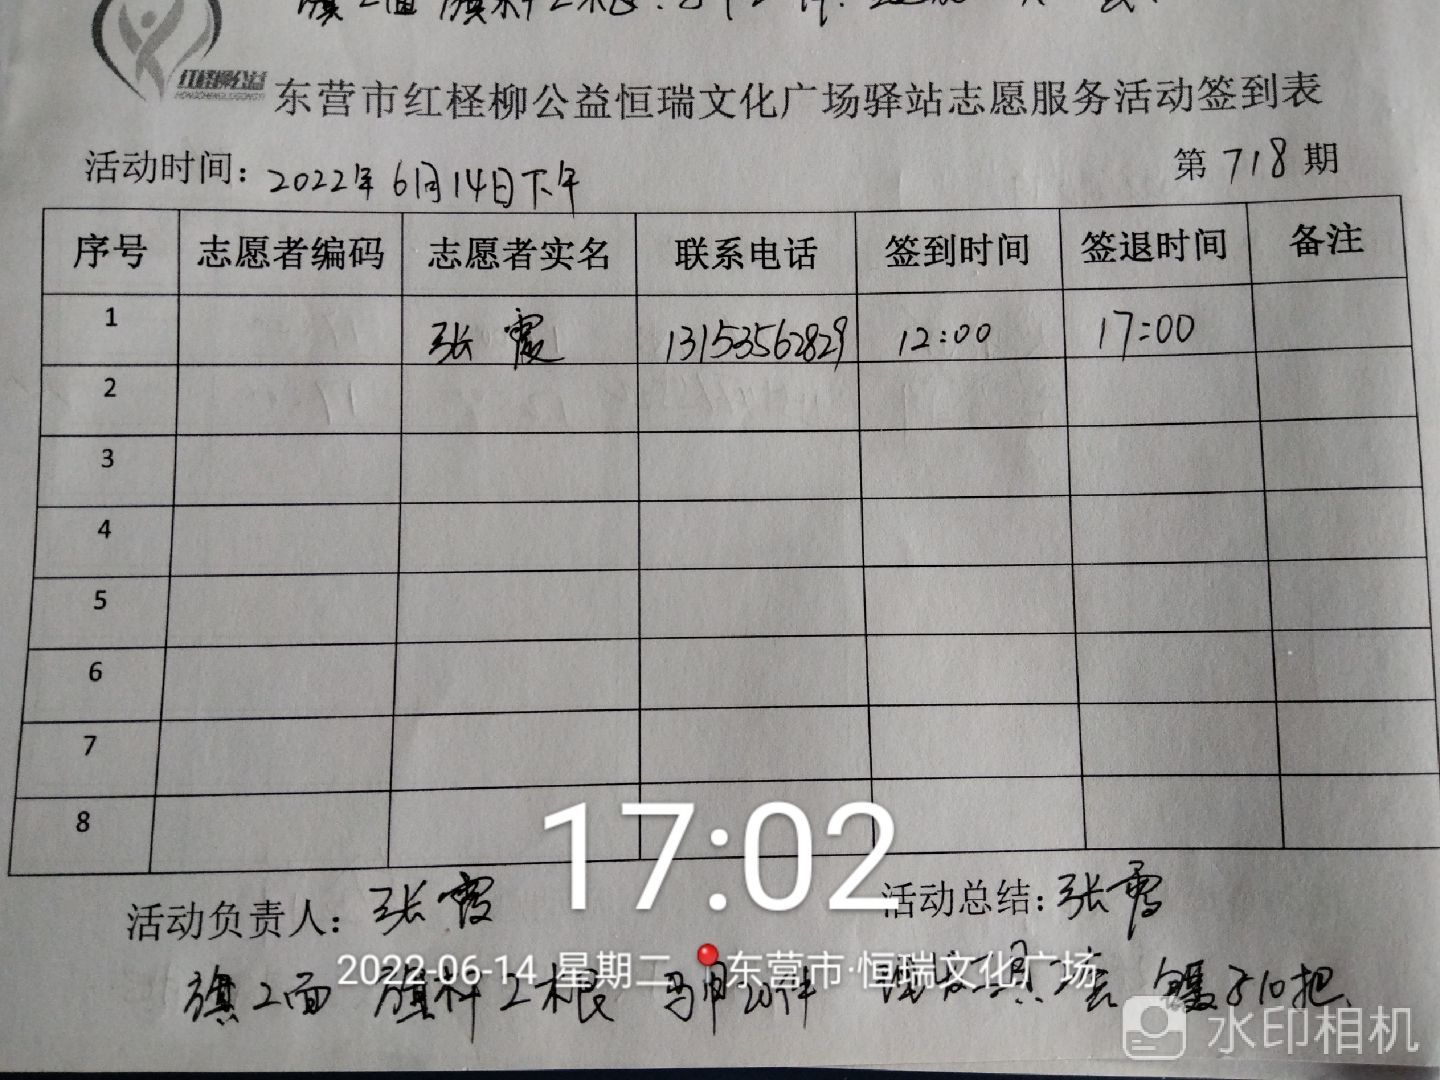 红柽柳公益
东营市红柽柳公益恒瑞文化广场驿站志愿服务活动签到表
活动时间：2022年6月14日下午 第718期
序号 志愿者编码 志愿者实名 联系电话 签到时间 签退时间 备注
1 张霞 13153562829 12:00 17:00
2
3
4
5
6
7
8
17:02
活动负责人：张霞 活动总结：张霞
2022-06-14 星期二 东营市·恒瑞文化广场
旗2面 旗杆2根 马甲20件 10把
水印相机